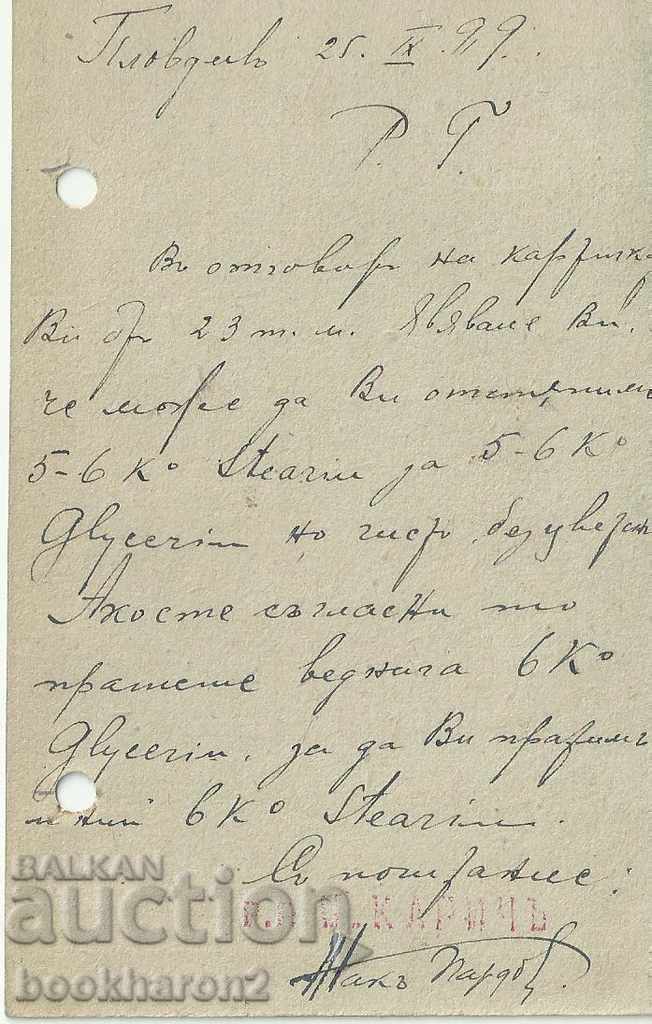 Пловдивъ 25. IX. 919.
Р. Г.
Въ отговоръ на картичка
Ви отъ 23 т. м. Явяваме Ви,
че може да Ви отстѫпимъ
5-6 Ко Stearin за 5-6 Ко
Glycerin но чисто, безцветно
Ако сте съгласни то
пратете веднага 6 Ко
Glycerin, за да Ви пратимъ
и ний 6 Ко Stearin.
Съ почитание:
КАРИЧЪ
Жакъ Пардо
BALKAN
auction
bookharon2